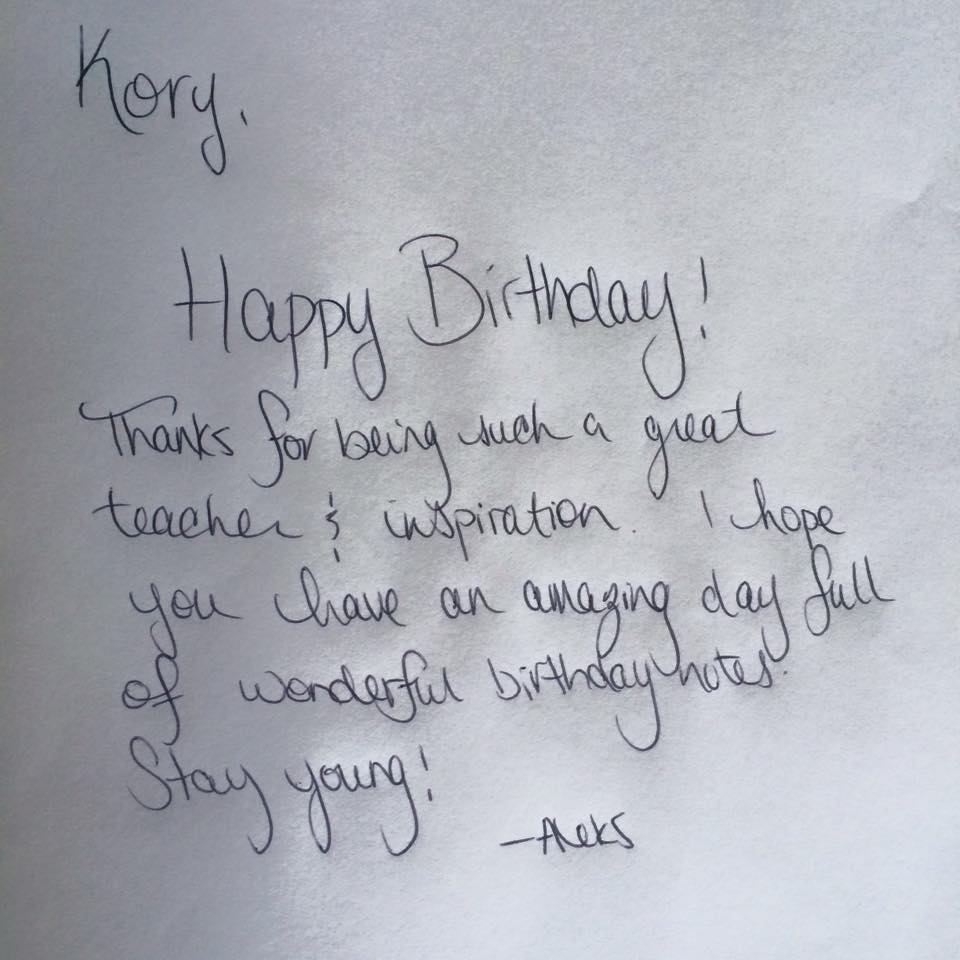 Kory,
Happy Birthday!
Thanks for being such a great
teacher & inspiration. I hope
you have an amazing day full
of wonderful birthday notes!
Stay young!
-Aleks